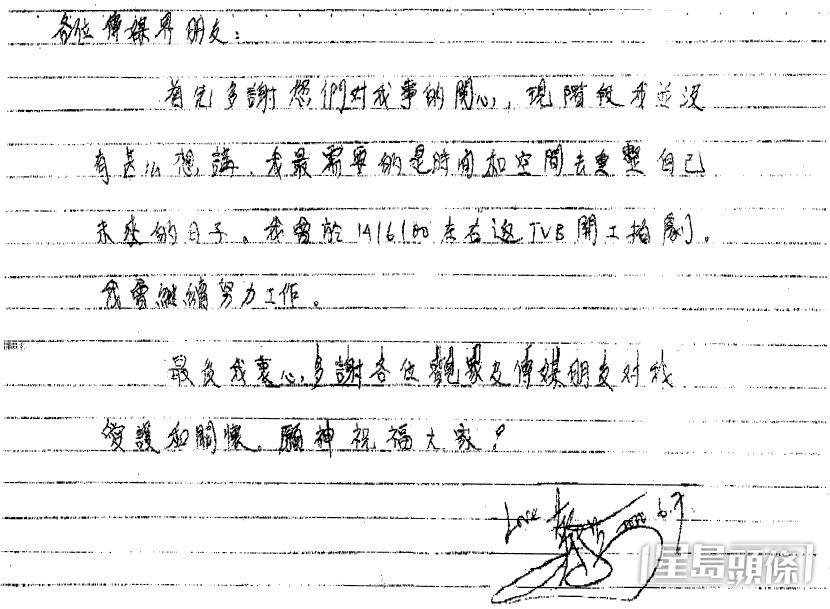 各位傳媒界朋友：
首先多謝您們對我事的関心，現階段我並沒
有甚么想講，我最需要的是時间和空間去重整自己
未來的日子。我會於14/6/00左右返TVB開工拍劇。
我會繼續努力工作。
最後我衷心多謝各位觀眾及傳媒朋友对我
愛護和關懷。願神祝福大家！
Love 2000 6.7
星島頭條